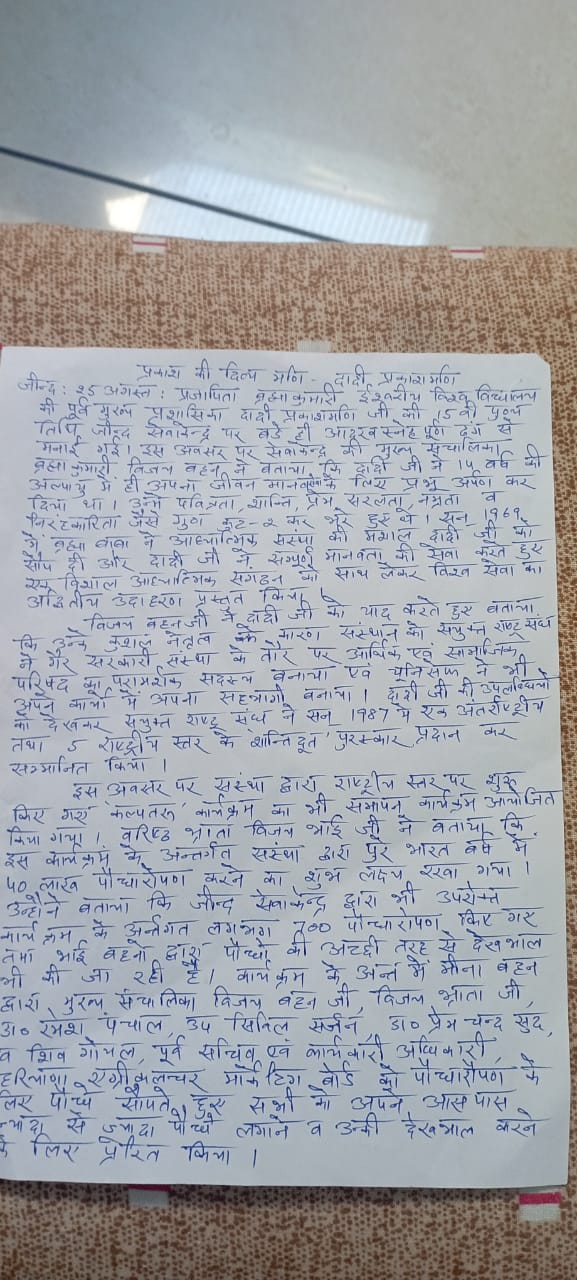 प्रकाश की दिव्य मणि - दादी प्रकाशमणि
जीन्द : 25 अगस्त : प्रजापिता ब्रह्माकुमारी ईश्वरीय विश्व विद्यालय
की पूर्व मुख्य प्रशासिका दादी प्रकाशमणि जी की 15वीं पुण्य
तिथि जीन्द सेवाकेन्द्र पर बडे ही आदर व स्नेह पूर्ण ढंग से
मनाई गई। इस अवसर पर सेवाकेन्द्र की मुख्य संचालिका
ब्रह्माकुमारी विजय बहन ने बताया कि दादी जी ने 14 वर्ष की
अल्पायु में ही अपना जीवन मानव सेवा के लिए प्रभु अर्पण कर
दिया था। उनमे पवित्रता, शान्ति, प्रेम, सरलता, नम्रता व
निरहंकारिता जैसे गुण कूट-2 कर भरे हुए थे। सन् 1969
में ब्रह्मा बाबा ने आध्यात्मिक संस्था की मशाल दादी जी को
सौंप दी और दादी जी ने सम्पूर्ण मानवता की सेवा करते हुए
एक विशाल आध्यात्मिक संगठन को साथ लेकर विश्व सेवा का
अद्वितीय उदाहरण प्रस्तुत किया।
विजय बहन जी ने दादी जी को याद करते हुए बताया
कि उनके कुशल नेतृत्व के कारण संस्थान को संयुक्त राष्ट्र संघ
में गैर सरकारी संस्था के तौर पर आर्थिक एवं सामाजिक
परिषद का परामर्शक सदस्य बनाया एवं यूनिसेफ ने भी
अपने कार्यो में अपना सहभागी बनाया। दादी जी की उपलब्धियों
को देखकर संयुक्त राष्ट्र संघ ने सन् 1987 में एक अंतर्राष्ट्रीय
तथा 5 राष्ट्रीय स्तर के 'शान्तिदूत' पुरस्कार प्रदान कर
सम्मानित किया।
इस अवसर पर संस्था द्वारा राष्ट्रीय स्तर पर शुरू
किए गए 'कल्पतरू' कार्यक्रम का भी समापन कार्यक्रम आयोजित
किया गया। वरिष्ठ भ्राता विजय भाई जी ने बताया कि
इस कार्यक्रम के अन्तर्गत संस्था द्वारा पुरे भारत वर्ष में
40 लाख पौधारोपण करने का शुभ लक्ष्य रखा गया।
उन्होंने बताया कि जीन्द सेवाकेन्द्र द्वारा भी उपरोक्त
कार्यक्रम के अर्न्तगत लगभग 700 पौधारोपण किए गए
तथा भाई बहनों द्वारा पौधो की अच्छी तरह से देखभाल
भी की जा रही है। कार्यक्रम के अन्त में मीना बहन
द्वारा मुख्य संचालिका विजय बहन जी, विजय भ्राता जी,
डा० रमेश पंचाल, उप सिविल सर्जन, डा० प्रेम चन्द सुद,
व शिव गोयल, पूर्व सचिव एवं कार्यकारी अधिकारी,
हरियाणा एग्रीकल्चर मार्केटिंग बोर्ड को पौधारोपण के
लिए पौधे सौंपते हुए सभी को अपने आस पास
ज्यादा से ज्यादा पौधे लगाने व उनकी देखभाल करने
के लिए प्रेरित किया।